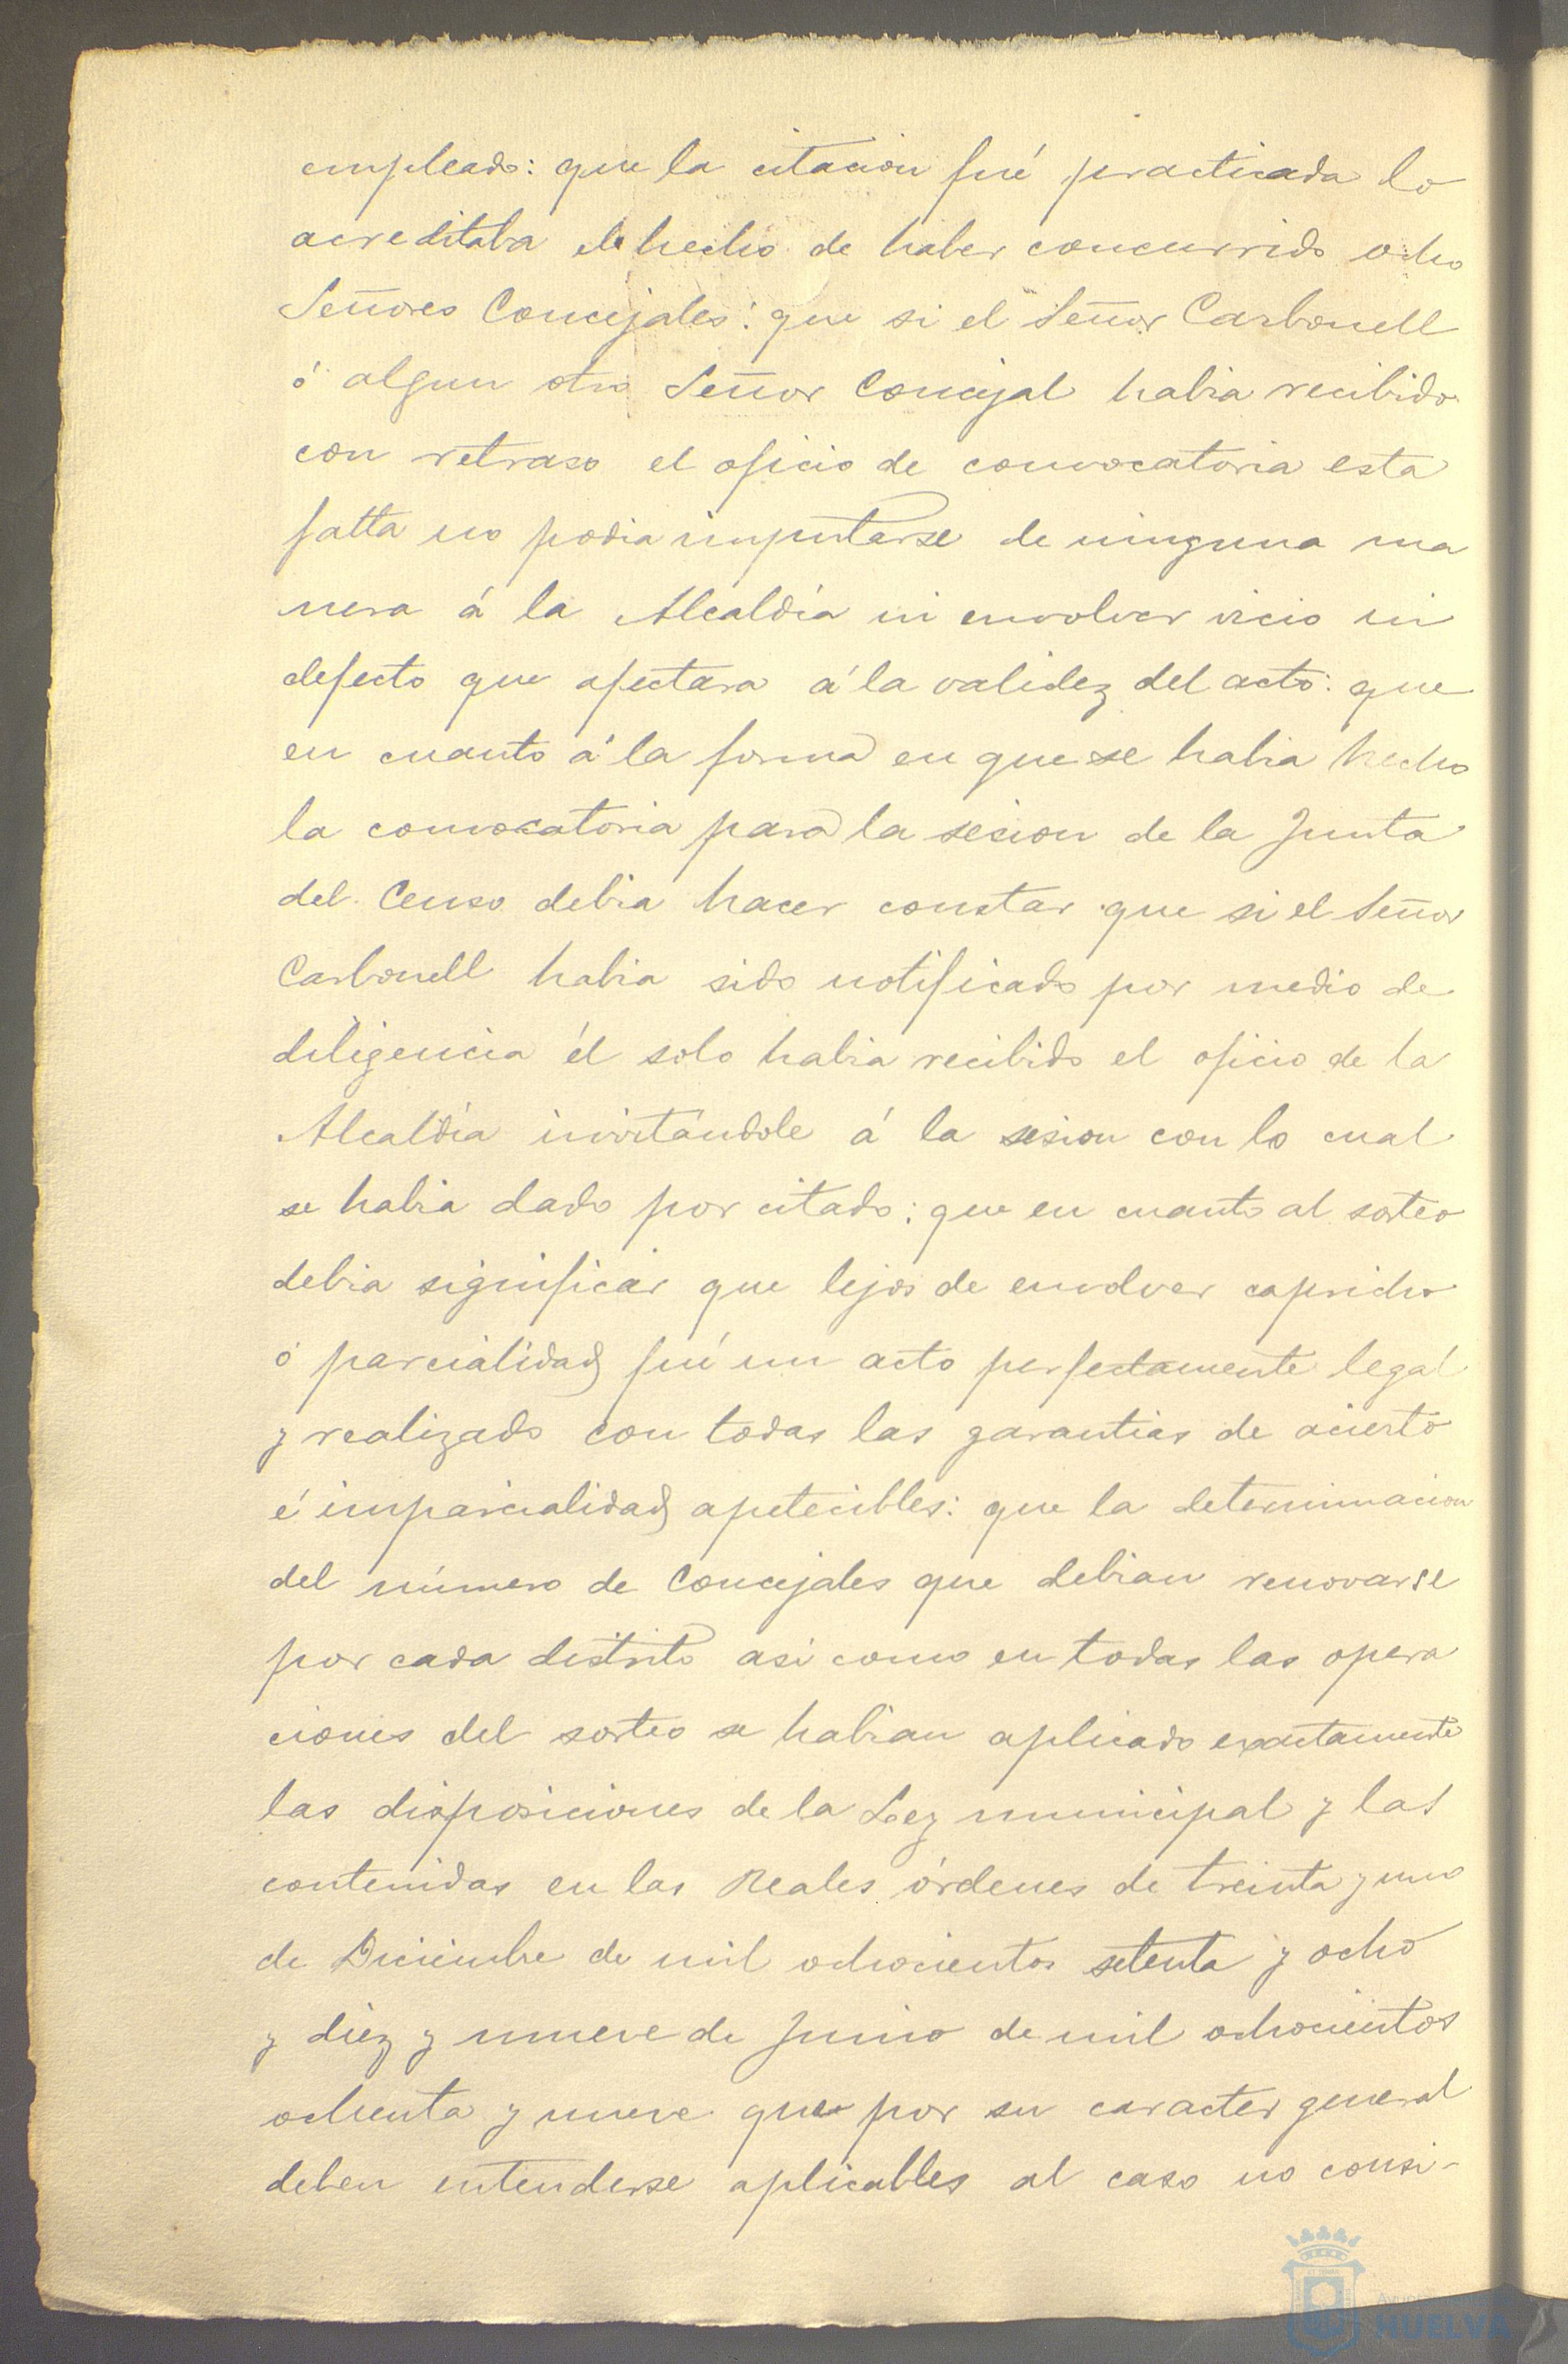 empleado: que la citacion fué practicada lo
acreditaba el hecho de haber concurrido ocho
Señores Concejales: que si el Señor Carbonell
ó algun otro Señor Concejal habia recibido
con retraso el oficio de convocatoria esta
falta no podia imputarse de ninguna ma
nera á la Alcaldía ni envolver vicio ni
defecto que afectara á la validez del acto: que
en cuanto á la forma en que se habia hecho
la convocatoria para la sesion de la Junta
del Censo debia hacer constar que si el Señor
Carbonell habia sido notificado por medio de
diligencia él solo habia recibido el oficio de la
Alcaldía invitándole á la sesion con lo cual
se habia dado por citado; que en cuanto al sorteo
debia significar que lejos de envolver capricho
ó parcialidad fué un acto perfectamente legal
y realizado con todas las garantias de acierto
é imparcialidad apetecibles: que la determinacion
del número de Concejales que debian renovarse
por cada distrito asi como en todas las opera
ciones del sorteo se habian aplicado exactamente
las disposiciones de la Ley municipal y las
contenidas en las Reales órdenes de treinta y uno
de Diciembre de mil ochocientos setenta y ocho
y diez y nueve de Junio de mil ochocientos
ochenta y nueve que por su caracter general
deben entenderse aplicables al caso no consi-
HUELVA